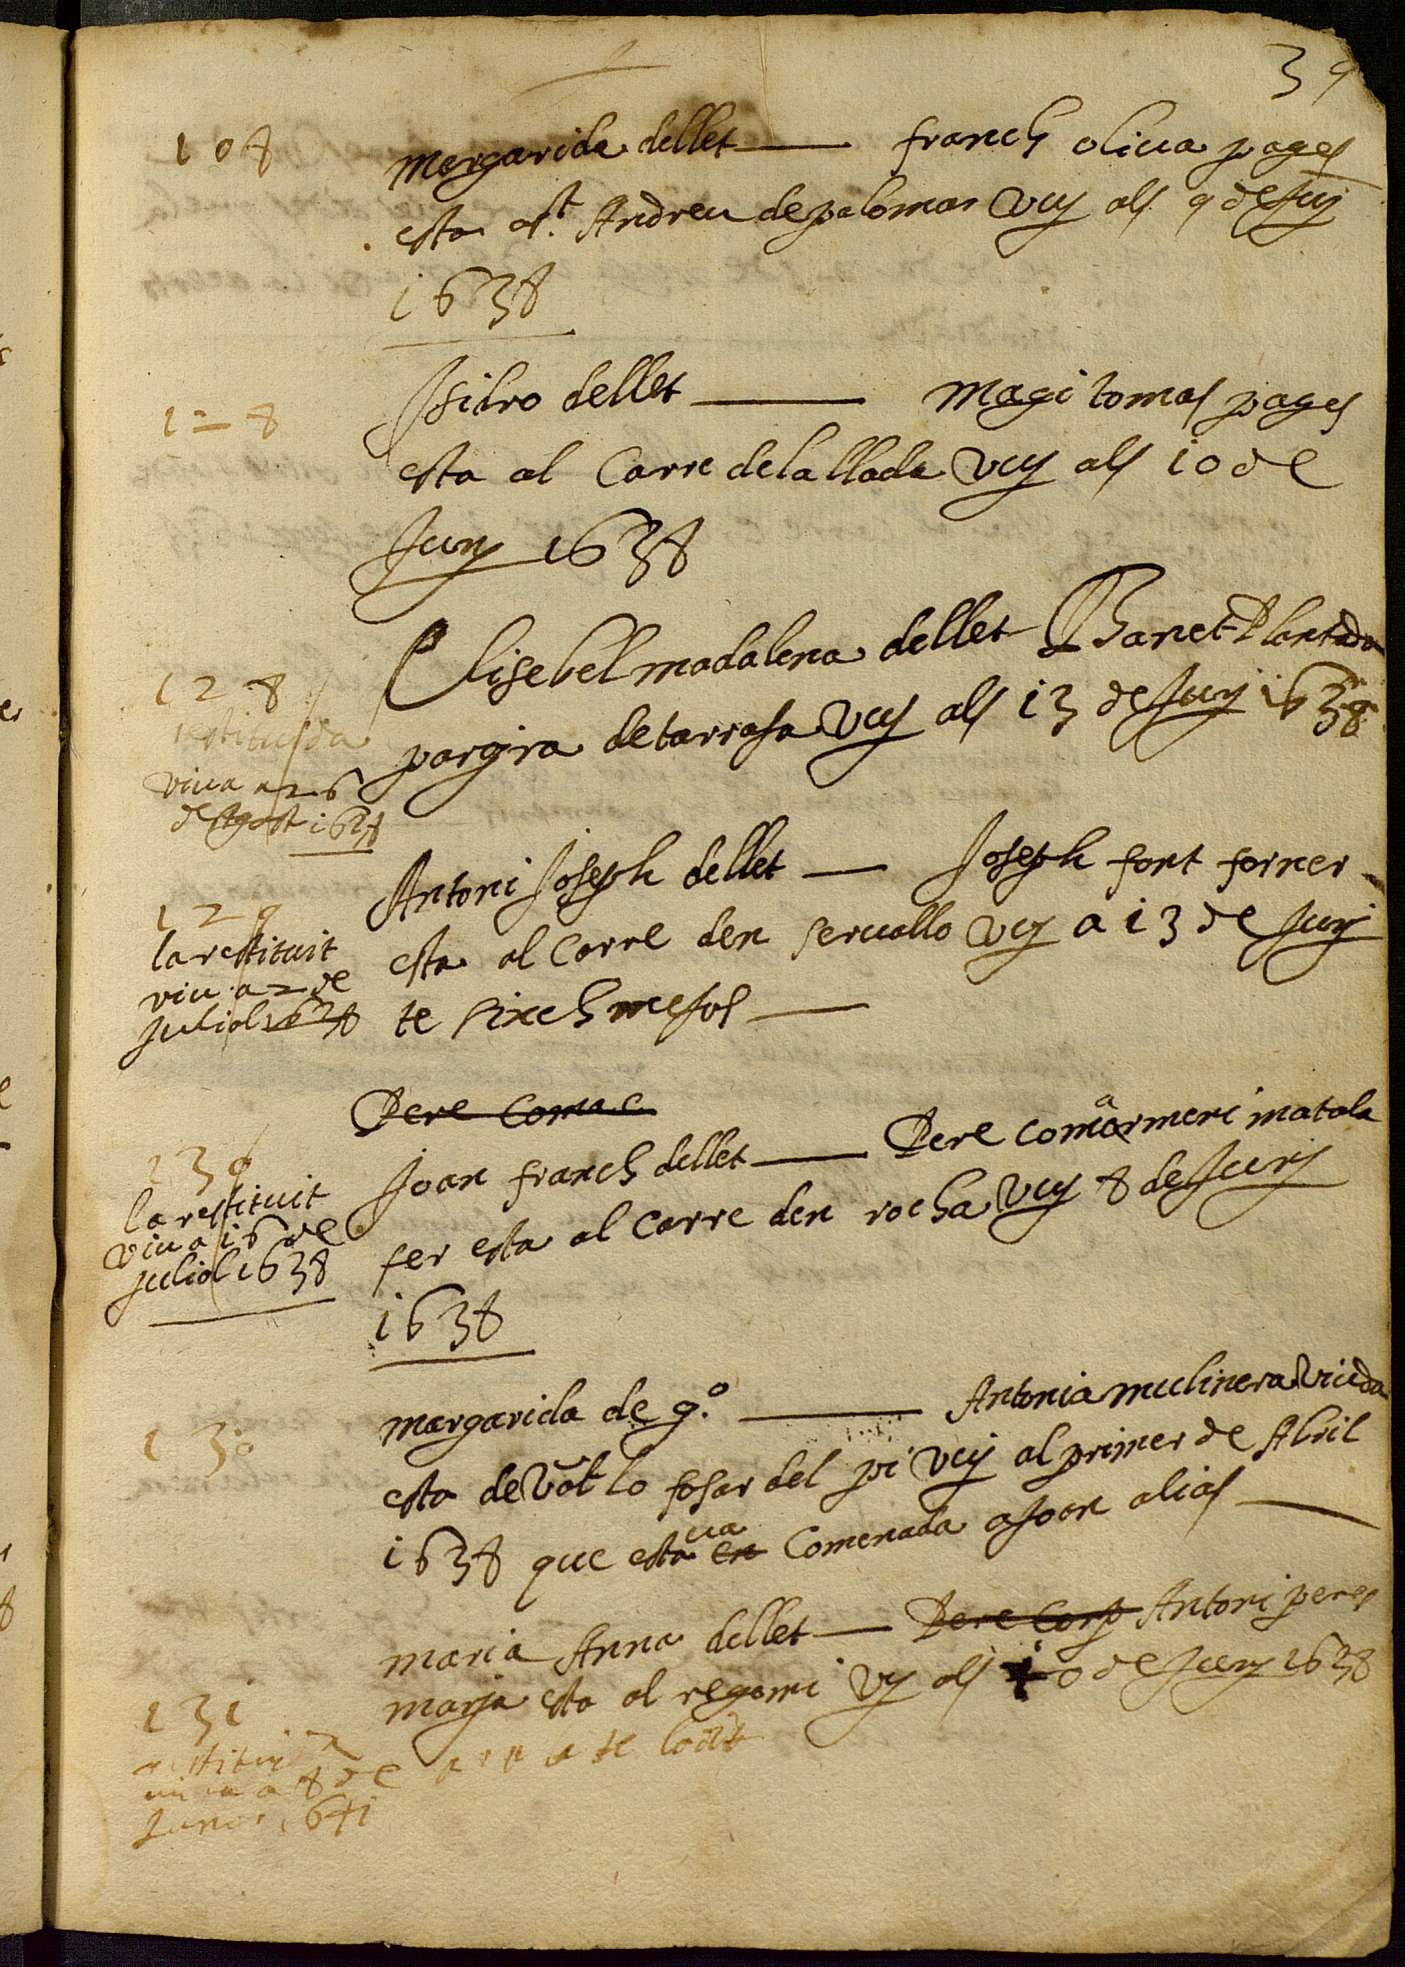 39
108
margarida dellet — franch oliua pages
esta a st. Andreu de palomar vuy als 9 de Juÿ
1638
128
Isidro dellet — magi tomas pages
esta al Carre de la llada vuy als 10 de
Juny 1638
128
restituida
viua a 26
de Agost 1638
Elisebel madalena dellet Banet Plantada
pargira de tarrasa vuy als 13 de Juÿ 1638
129
la restituit
viu a 2 de
Juliol 1638
Antoni Joseph dellet — Joseph font forner
esta al Carre den seruallo vuy a 13 de Juÿ
te sinch mesos —
Pere Coma
130
la restituit
viu a 16 de
Juliol 1638
Joan franch dellet — Pere coma armer i matala
fer esta al Carre den rocha vuy 8 de Juÿ
1638
130
margarida de g.º — Antonia mulinera viuda
esta deuãt lo fosar del pi vuy al primer de Abril
1638 que estaua en Comenada a Joan alias —
131
restituida
viua a 8 de
Janer 1641
maria Anna dellet — Pere Corp Antoni peres
marja esta al regomi vy als 10 de Juny 1638
ara te